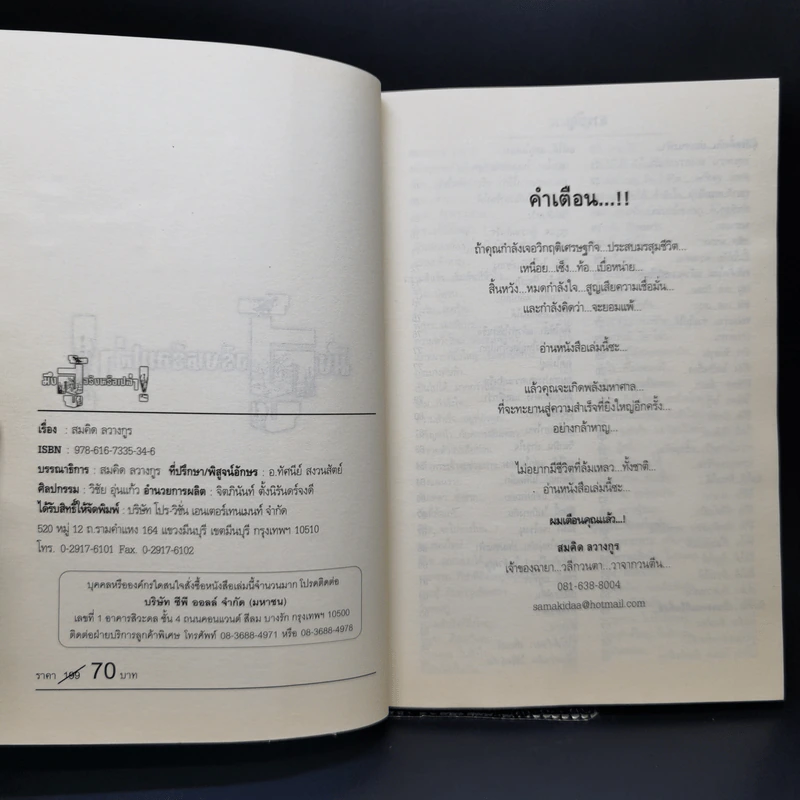 เรื่อง : สมคิด ลวางกูร
ISBN : 978-616-7335-34-6
บรรณาธิการ : สมคิด ลวางกูร ที่ปรึกษา/พิสูจน์อักษร : อ.ทัศนีย์ สงวนสัตย์
ศิลปกรรม : วิชัย อุ่นแก้ว อำนวยการผลิต : จิตภินันท์ ตั้งนิรันดร์จงดี
ได้รับสิทธิ์ให้จัดพิมพ์ : บริษัท โปร-วิชั่น เอนเตอร์เทนเมนท์ จำกัด
520 หมู่ 12 ถ.รามคำแหง 164 แขวงมีนบุรี เขตมีนบุรี กรุงเทพฯ 10510
โทร. 0-2917-6101 Fax. 0-2917-6102
บุคคลหรือองค์กรใดสนใจสั่งซื้อหนังสือเล่มนี้จำนวนมาก โปรดติดต่อ
บริษัท ซีพี ออลล์ จำกัด (มหาชน)
เลขที่ 1 อาคารสิวะดล ชั้น 4 ถนนคอนแวนต์ สีลม บางรัก กรุงเทพฯ 10500
ติดต่อฝ่ายบริการลูกค้าพิเศษ โทรศัพท์ 08-3688-4971 หรือ 08-3688-4978
ราคา 199 70 บาท
คำเตือน...!!
ถ้าคุณกำลังเจอวิกฤติเศรษฐกิจ...ประสบมรสุมชีวิต...
เหนื่อย...เซ็ง...ท้อ...เบื่อหน่าย...
สิ้นหวัง...หมดกำลังใจ...สูญเสียความเชื่อมั่น...
และกำลังคิดว่า...จะยอมแพ้...
อ่านหนังสือเล่มนี้ซะ...
แล้วคุณจะเกิดพลังมหาศาล...
ที่จะทะยานสู่ความสำเร็จที่ยิ่งใหญ่อีกครั้ง...
อย่างกล้าหาญ...
ไม่อยากมีชีวิตที่ล้มเหลว...ทั้งชาติ...
อ่านหนังสือเล่มนี้ซะ...
ผมเตือนคุณแล้ว...!
สมคิด ลวางกูร
เจ้าของฉายา...วลีกวนตา...วาจากวนตีน...
081-638-8004
samakidaa@hotmail.com